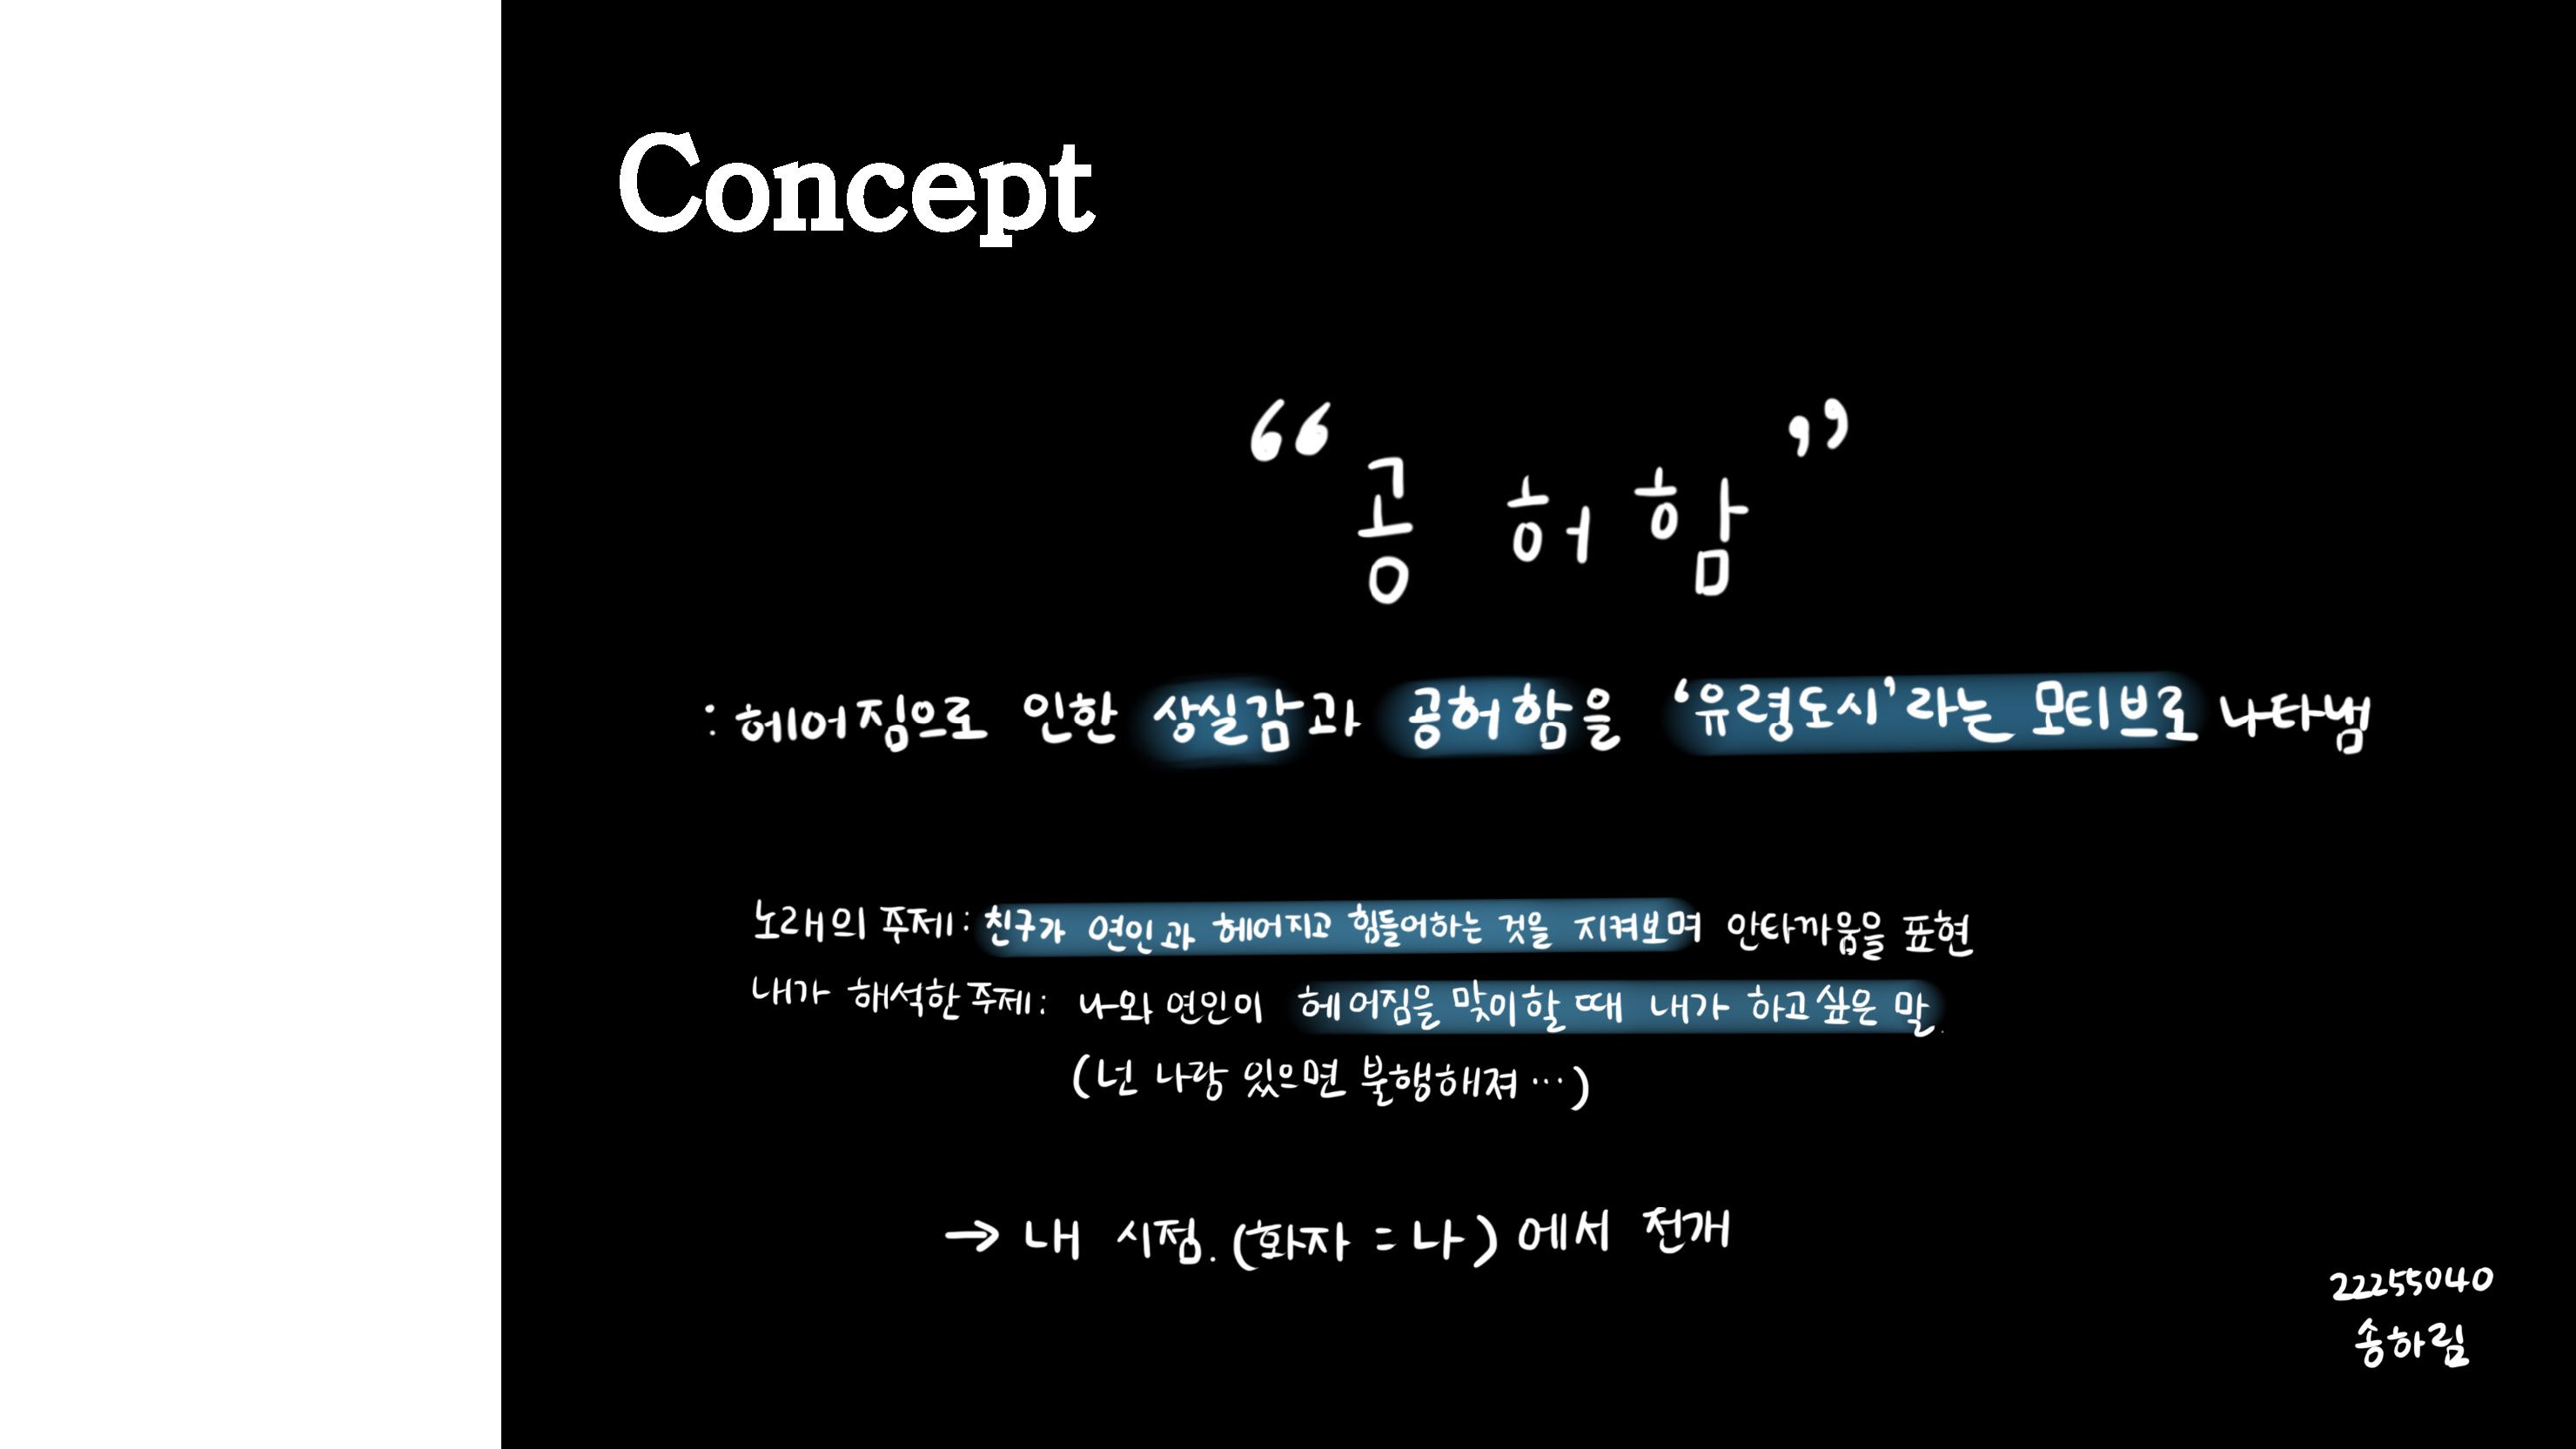 Concept
“공 허함”
: 헤어짐으로 인한 상실감과 공허함을 ‘유령도시’라는 모티브로 나타냄
노래의 주제: 친구가 연인과 헤어지고 힘들어하는 것을 지켜보며 안타까움을 표현
내가 해석한 주제: 나와 연인이 헤어짐을 맞이할 때 내가 하고싶은 말.
(넌 나랑 있으면 불행해져…)
→ 내 시점. (화자 = 나) 에서 전개
22255040
송하림